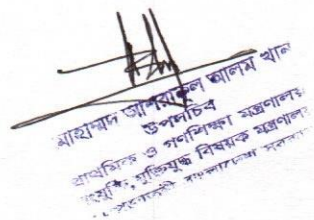 মোহাম্মদ আশরাফুল আলম খান
উপসচিব
প্রাথমিক ও গণশিক্ষা মন্ত্রণালয়
মুক্তিযুদ্ধ বিষয়ক মন্ত্রণালয়